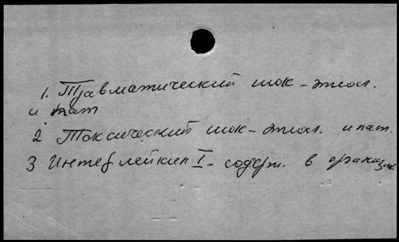 1. Травматический шок - этиол.
и пат
2 Токсический шок - этиол. и пат.
3 Интерлейкин I - содерж. в